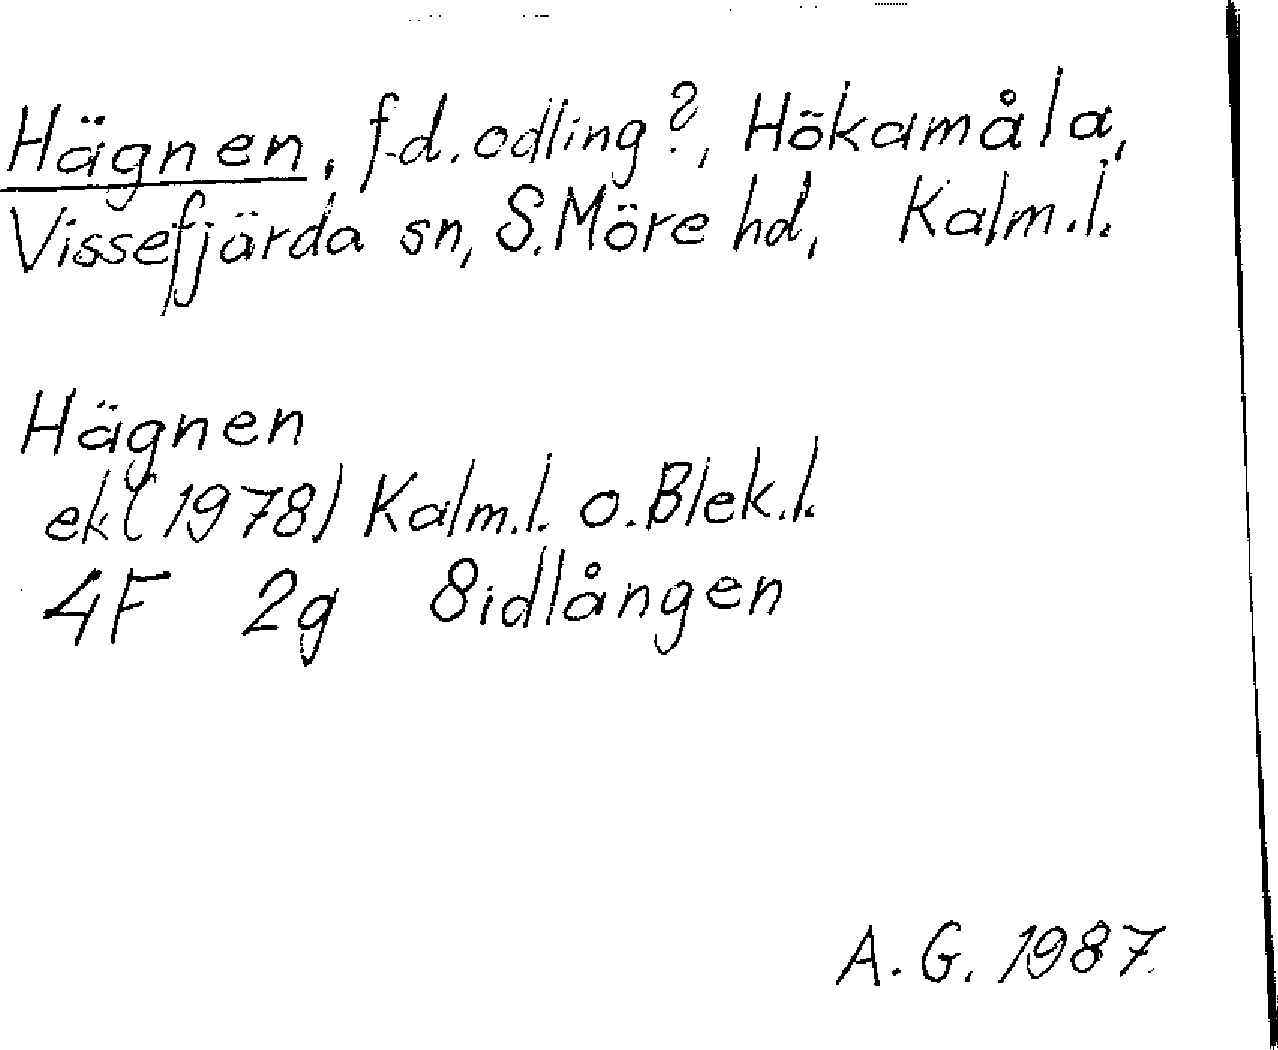 Hägnen, f.d. odling?, Hökamåla,
Vissefjärda sn, S. Möre hd, Kalm.l.
Hägnen
ek (1978) Kalm.l. o. Blek.l.
4F 2g Sidlången
A. G. 1987